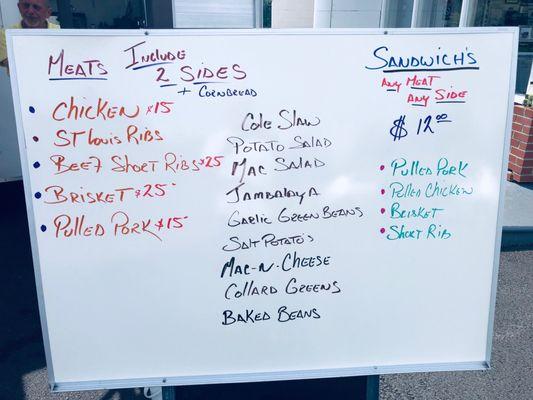 MEATS
INCLUDE
2 SIDES
+ CORNBREAD
CHICKEN $15
ST LOUIS RIBS
BEEF SHORT RIBS $25
BRISKET $25
PULLED PORK $15
COLE SLAW
POTATO SALAD
MAC SALAD
JAMBALAYA
GARLIC GREEN BEANS
SALT POTATO'S
MAC-N-CHEESE
COLLARD GREENS
BAKED BEANS
SANDWICH'S
ANY MEAT
ANY SIDE
$12.00
PULLED PORK
PULLED CHICKEN
BRISKET
SHORT RIB